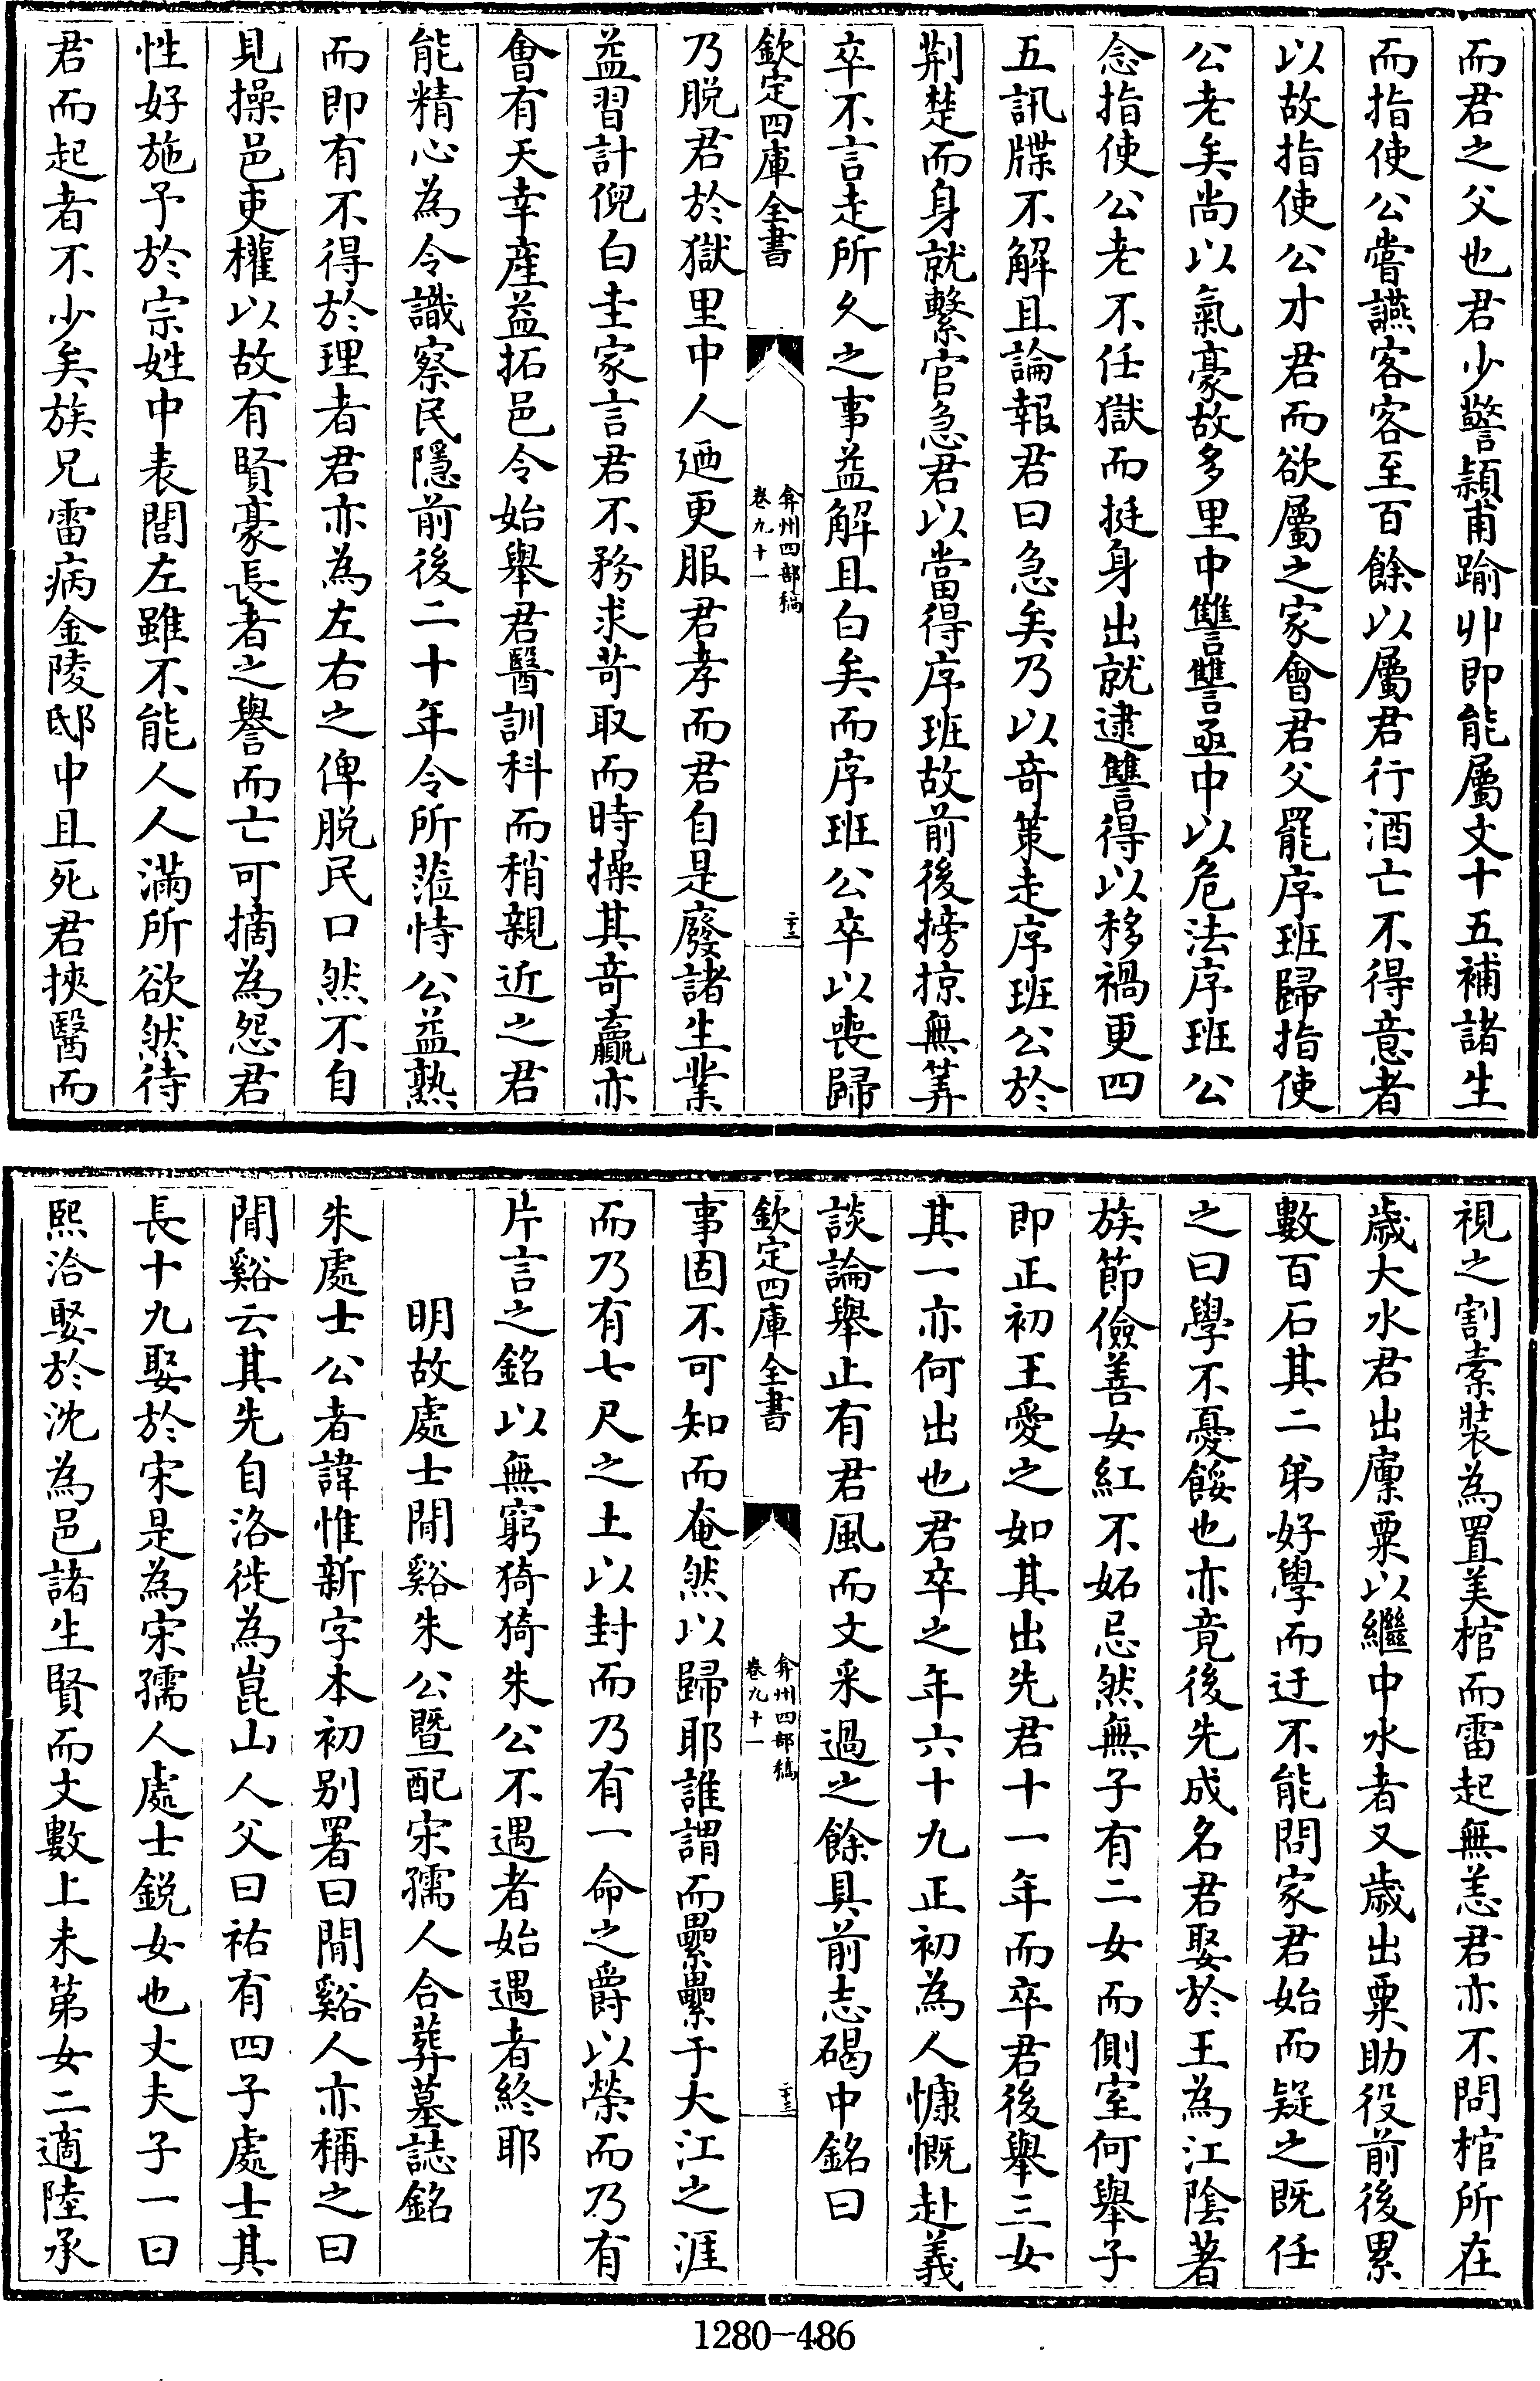 而君之父也君少警頴甫踰丱即能屬文十五補諸生
而指使公嘗讌客客至百餘以屬君行酒亡不得意者
以故指使公才君而欲屬之家會君父罷序班歸指使
公老矣尚以氣豪故多里中讐讐亟中以危法序班公
念指使公老不任獄而挺身出就逮讐得以移禍更四
五訊牒不解且論報君曰急矣乃以竒策走序班公於
荆楚而身就繫官急君以當得序班故前後搒掠無筭
卒不言走所久之事益解且白矣而序班公卒以喪歸
欽定四庫全書
弇州四部稿
卷九十一
二十二
乃脱君於獄里中人廼更服君孝而君自是廢諸生業
益習計倪白圭家言君不務求苛取而時操其竒贏亦
㑹有天幸産益拓邑令始舉君醫訓科而稍親近之君
能精心為令識察民隱前後二十年令所蒞恃公益熟
而即有不得於理者君亦為左右之俾脱民口然不自
見操邑吏權以故有賢豪長者之譽而亡可摘為怨君
性好施予於宗姓中表閭左雖不能人人滿所欲然待
君而起者不少矣族兄雷病金陵邸中且死君挾醫而
視之割橐裝為置美棺而雷起無恙君亦不問棺所在
歳大水君出廪粟以繼中水者又歳出粟助役前後累
數百石其二弟好學而迂不能問家君始而疑之既任
之曰學不憂餒也亦竟後先成名君娶於王為江隂著
族節儉善女紅不妬忌然無子有二女而側室何舉子
即正初王愛之如其出先君十一年而卒君後舉三女
其一亦何出也君卒之年六十九正初為人慷慨赴義
談論舉止有君風而文采過之餘具前志碣中銘曰
欽定四庫全書
弇州四部稿
卷九十一
二十三
事固不可知而奄然以歸耶誰謂而纍纍于大江之涯
而乃有七尺之土以封而乃有一命之爵以榮而乃有
片言之銘以無窮猗猗朱公不遇者始遇者終耶
明故處士閒谿朱公暨配宋孺人合葬墓誌銘
朱處士公者諱惟新字本初别署曰閒谿人亦稱之曰
閒谿云其先自洛徙為崑山人父曰祐有四子處士其
長十九娶於宋是為宋孺人處士鋭女也丈夫子一曰
熙洽娶於沈為邑諸生賢而文數上未第女二適陸承
1280-486